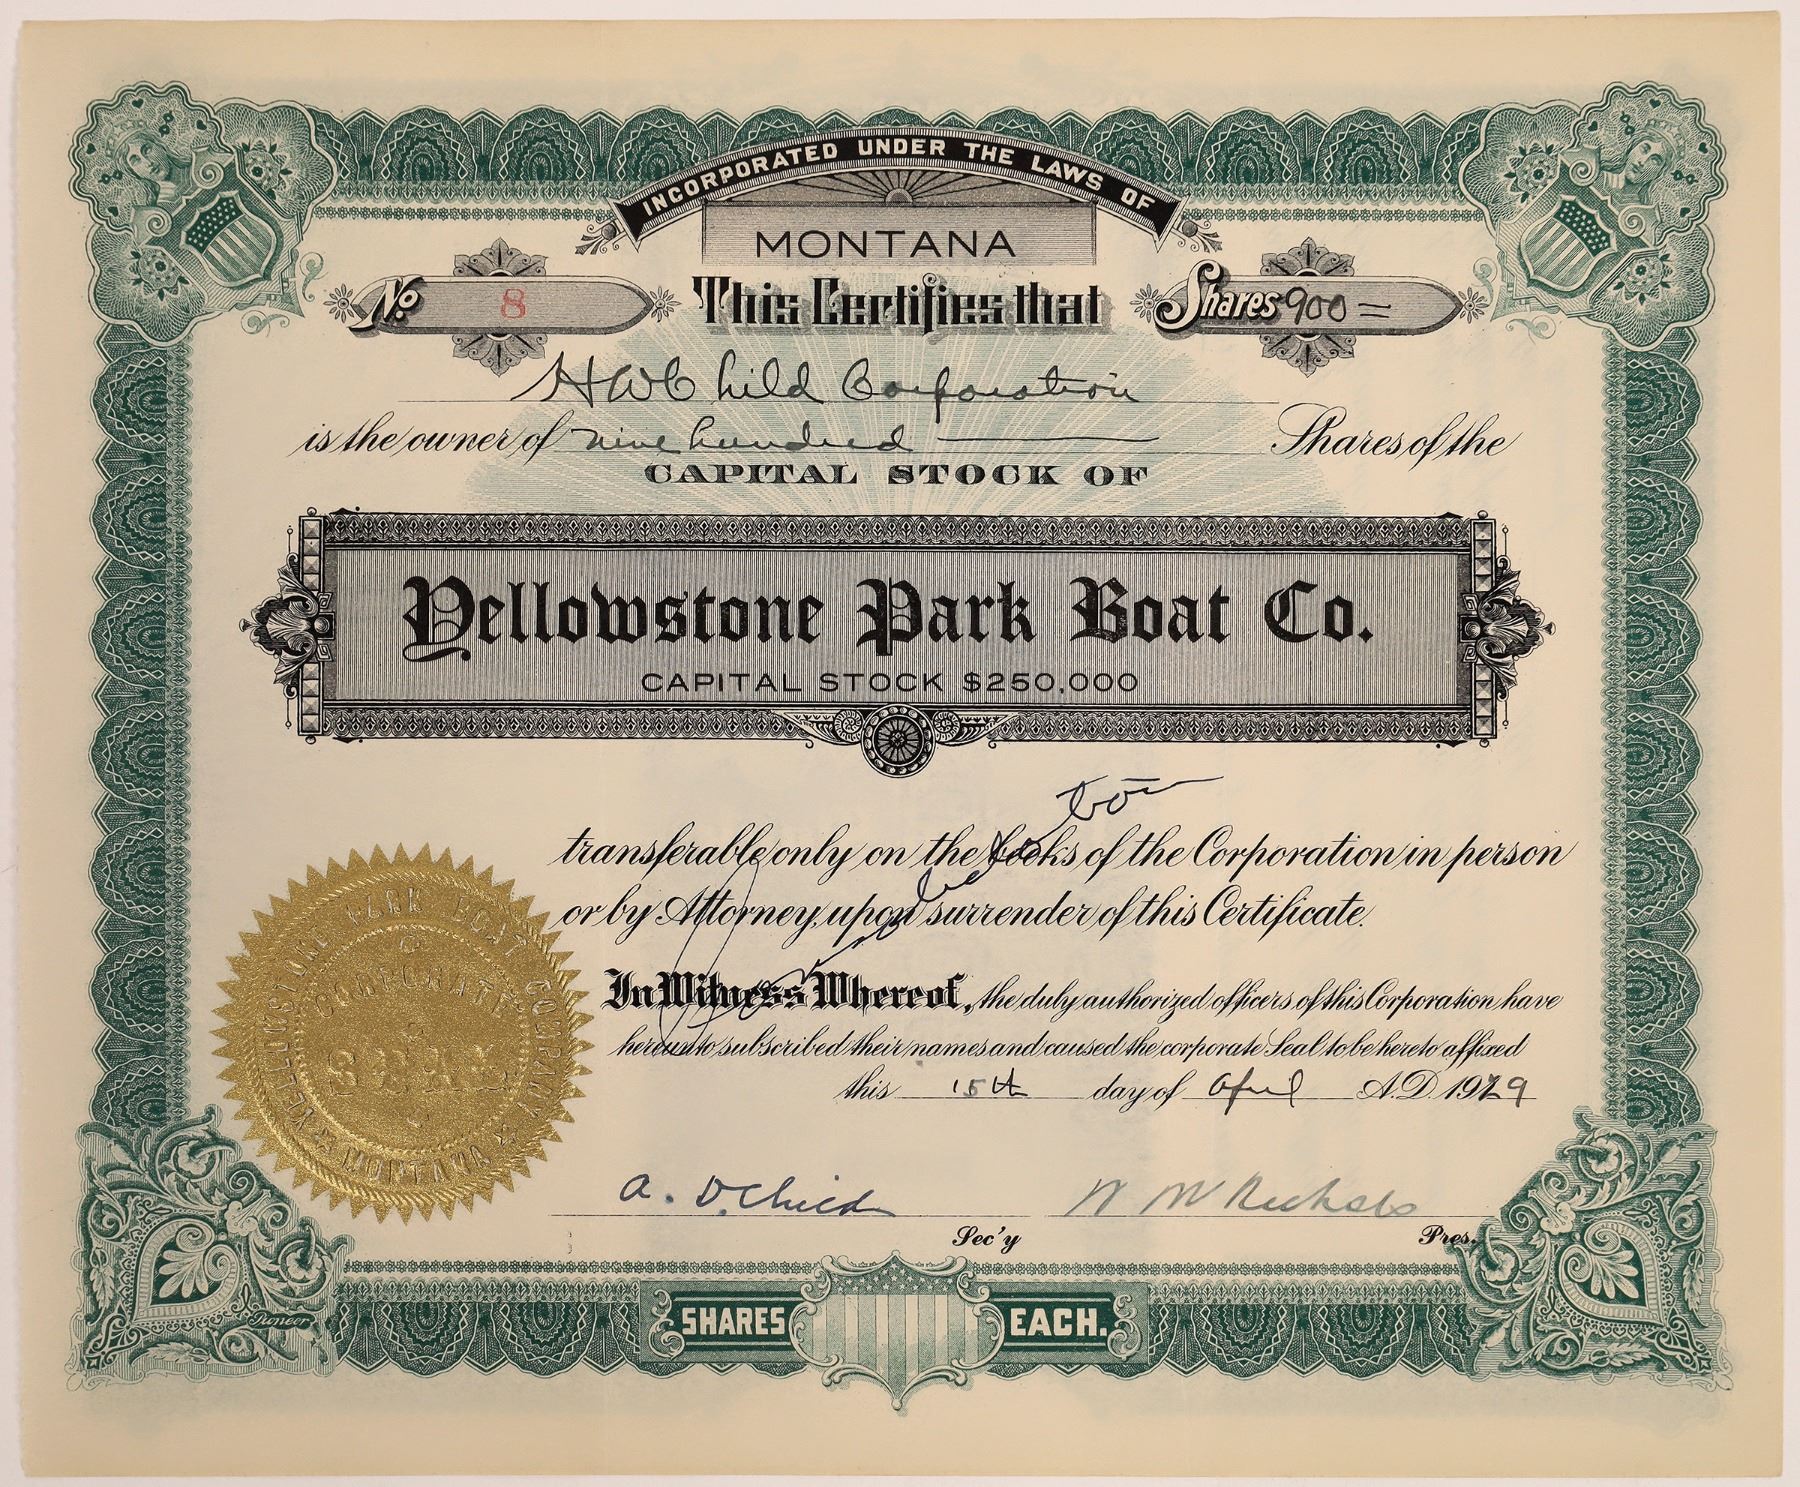 INCORPORATED UNDER THE LAWS OF
MONTANA
No. 8
This Certifies that
Shares 900 =
HW Child Corporation
is the owner of nine hundred Shares of the
CAPITAL STOCK OF
Yellowstone Park Boat Co.
CAPITAL STOCK $250,000
transferable only on the books of the Corporation in person
or by Attorney, upon surrender of this Certificate.
In Witness Whereof, the duly authorized officers of this Corporation have
hereunto subscribed their names and caused the corporate Seal to be hereto affixed
this 15th day of April A.D. 1929
YELLOWSTONE PARK BOAT COMPANY
CORPORATE
SEAL
MONTANA
A. D. Child
Sec'y
W M Nichols
Pres.
SHARES
EACH.
Pioneer